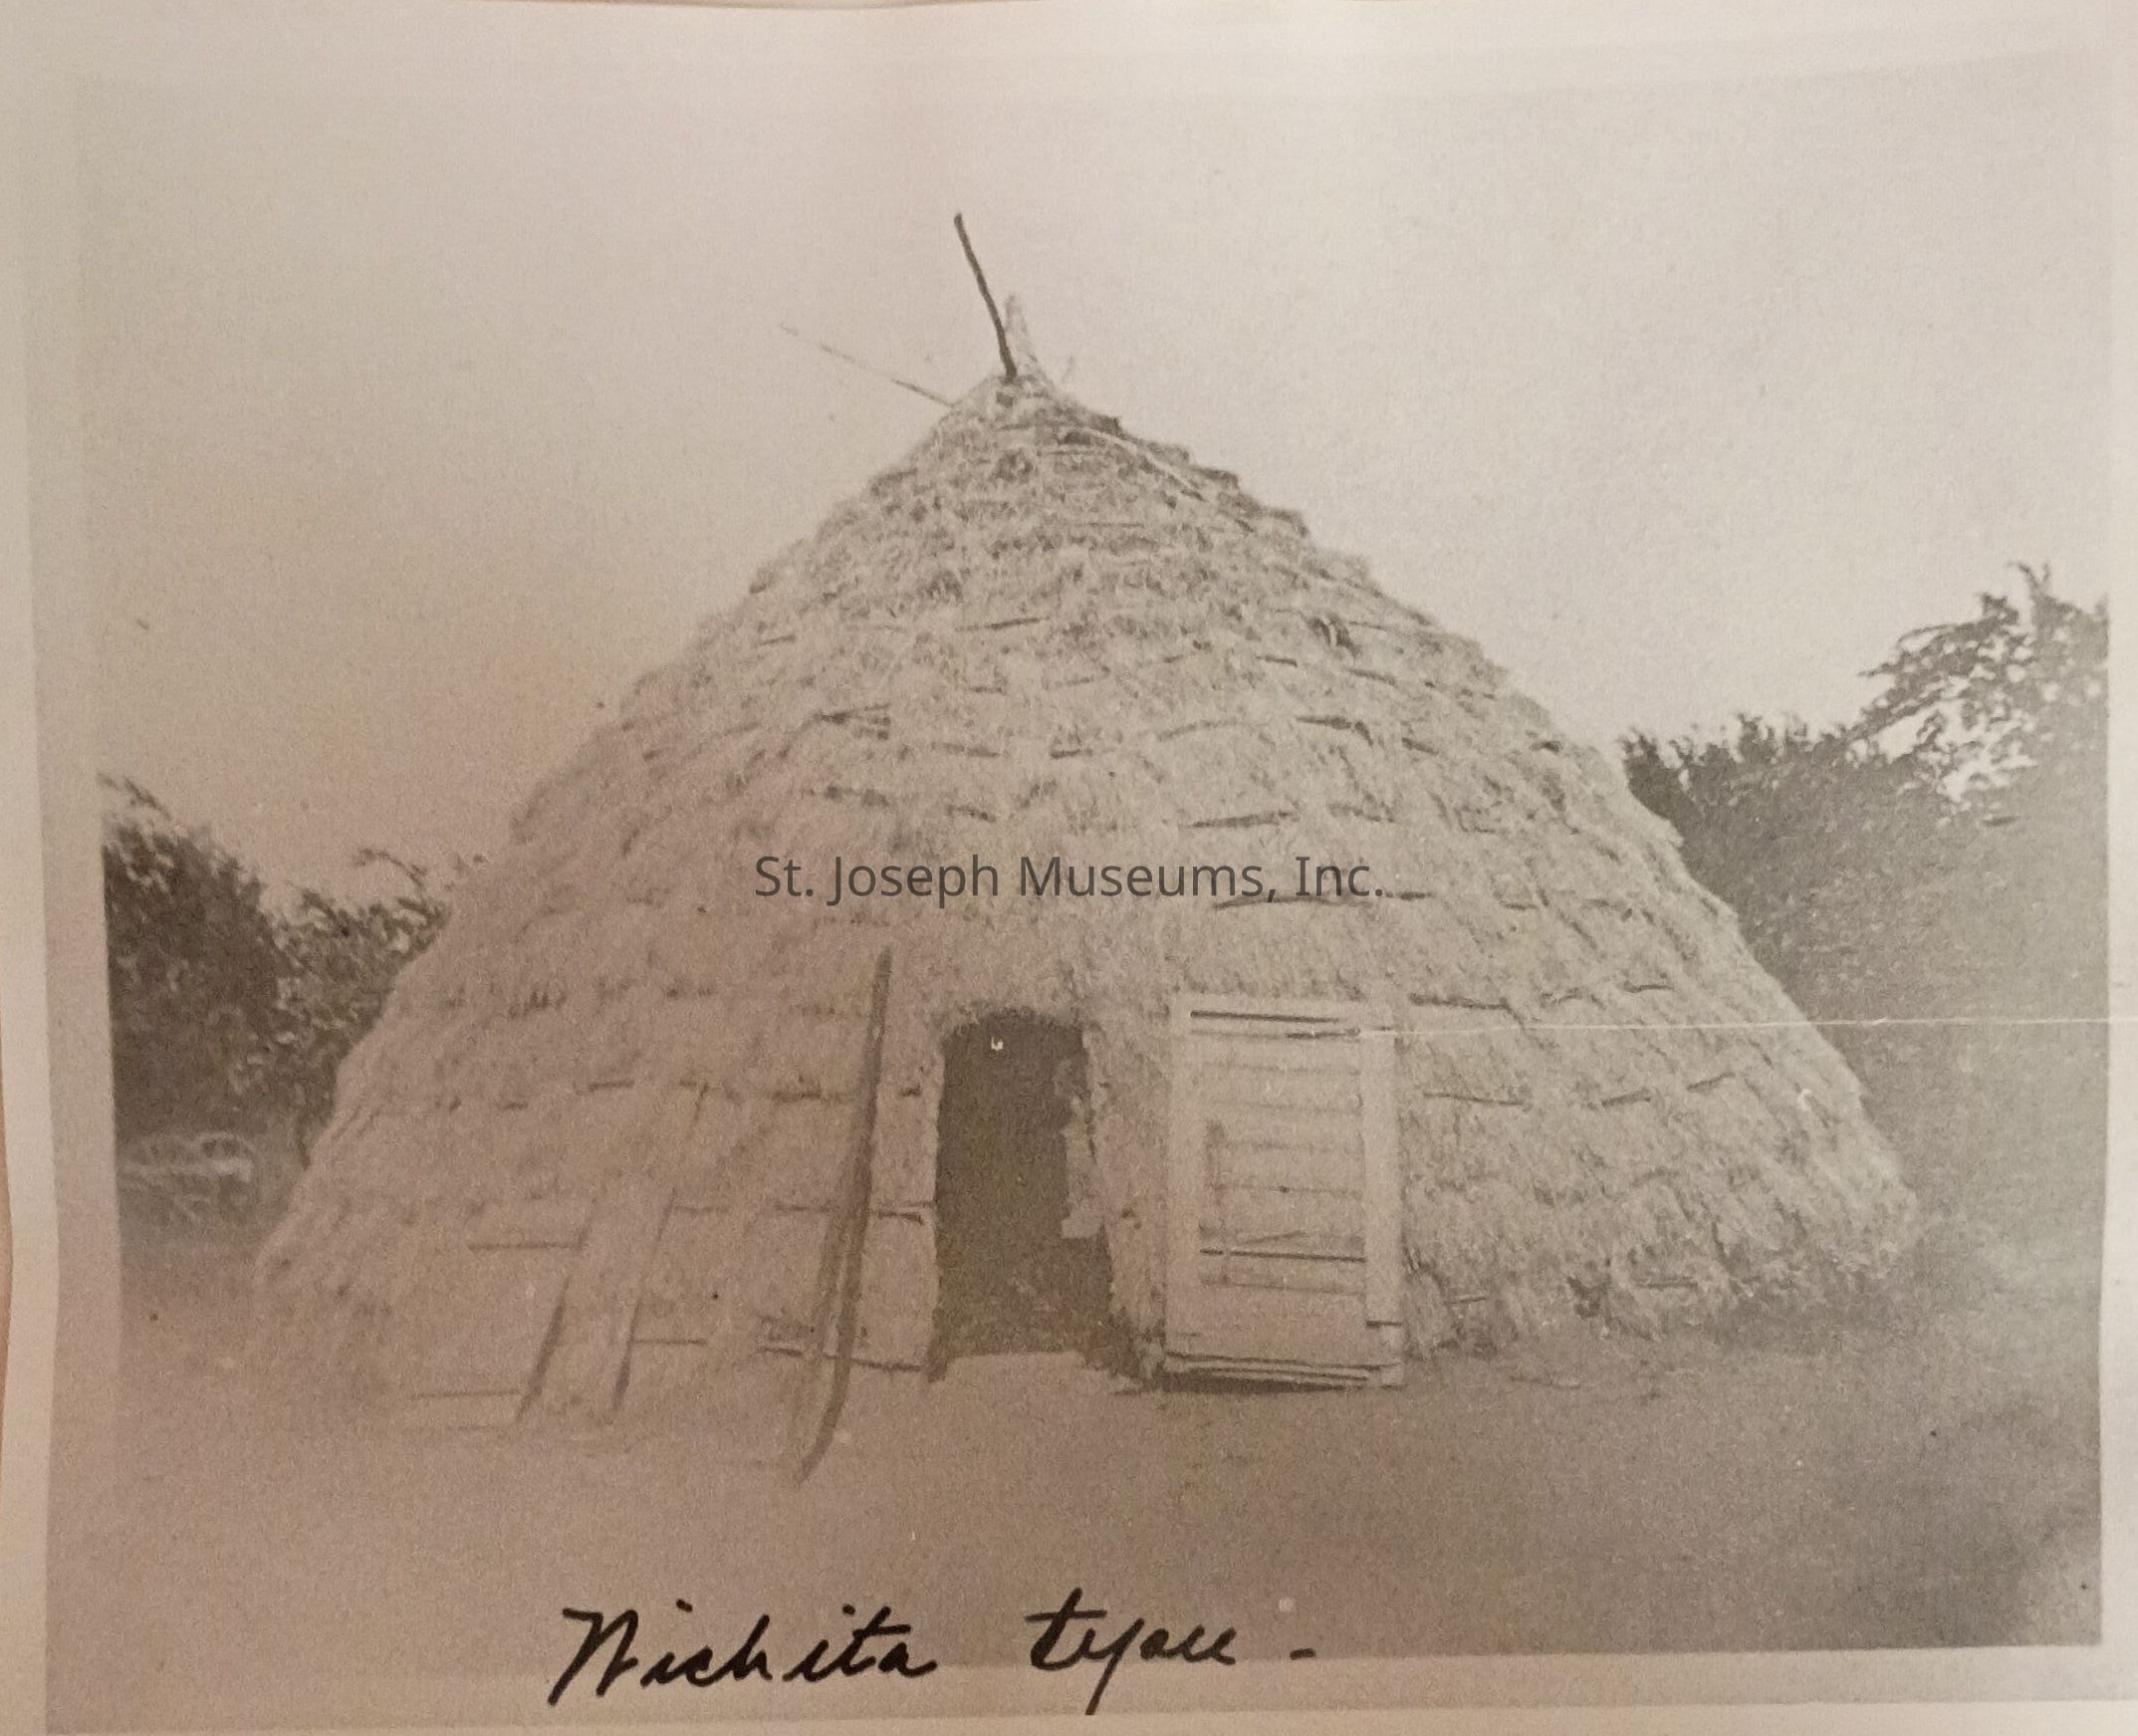 St. Joseph Museums, Inc.
Wichita tepee -